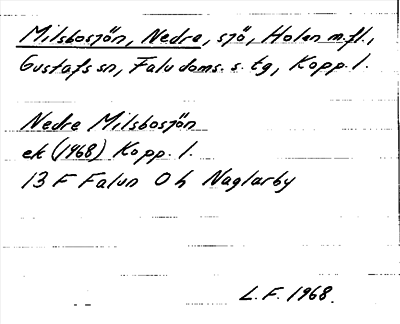 Milsbosjön, Nedre, sjö, Holen m.fl.,
Gustafs sn, Falu doms. s. tg, Kopp. l.
Nedre Milsbosjön
ek (1968) Kopp. l.
13 F Falun 0 h Naglarby
L.F. 1968.